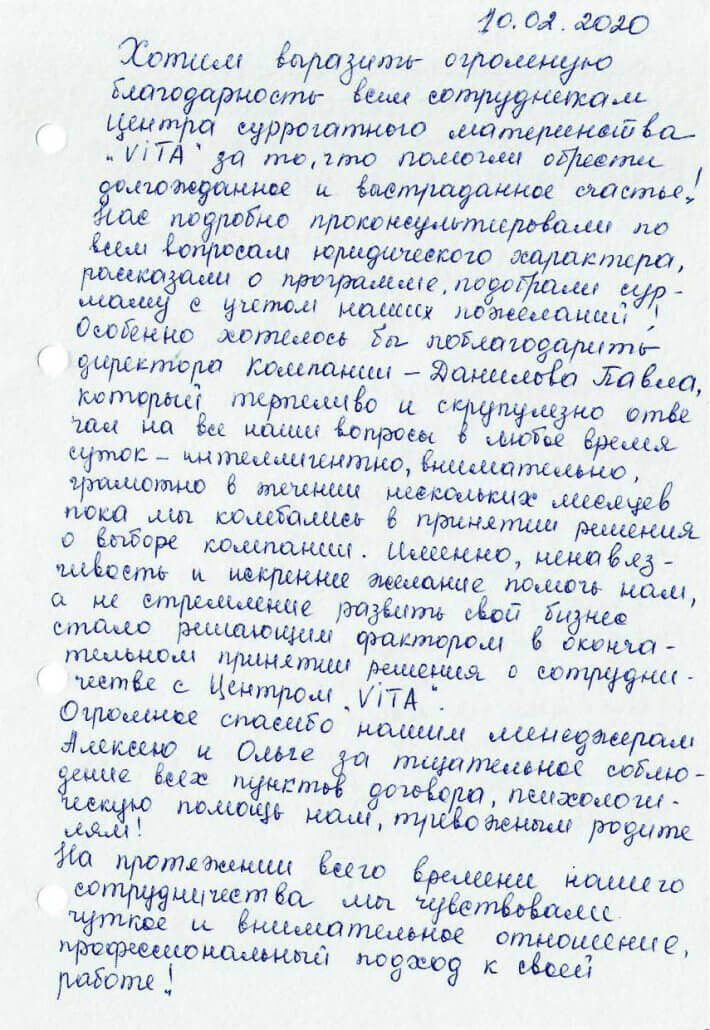 10.02.2020
Хотим выразить огромную
благодарность всем сотрудникам
Центра суррогатного материнства
„ViTA“ за то, что помогли обрести
долгожданное и выстраданное счастье!
Нас подробно проконсультировали по
всем вопросам юридического характера,
рассказали о программе, подобрали сур-
маму с учетом наших пожеланий!
Особенно хотелось бы поблагодарить
директора компании – Данилова Павла,
который терпеливо и скрупулезно отве
чал на все наши вопросы в любое время
суток – интеллигентно, внимательно,
грамотно в течении нескольких месяцев
пока мы колебались в принятии решения
о выборе компании. Именно, ненавяз-
чивость и искреннее желание помочь нам,
а не стремление развить свой бизнес
стало решающим фактором в оконча-
тельном принятии решения о сотрудни-
честве с Центром „ViTA“.
Огромное спасибо нашим менеджерам
Алексею и Ольге за тщательное соблю-
дение всех пунктов договора, психологи-
ческую помощь нам, тревожным родите
лям!
На протяжении всего времени нашего
сотрудничества мы чувствовали
чуткое и внимательное отношение,
профессиональный подход к своей
работе!